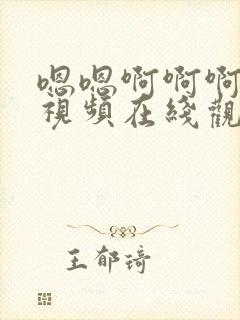 嗯嗯啊啊啊
視頻在綫觀
王郁琦